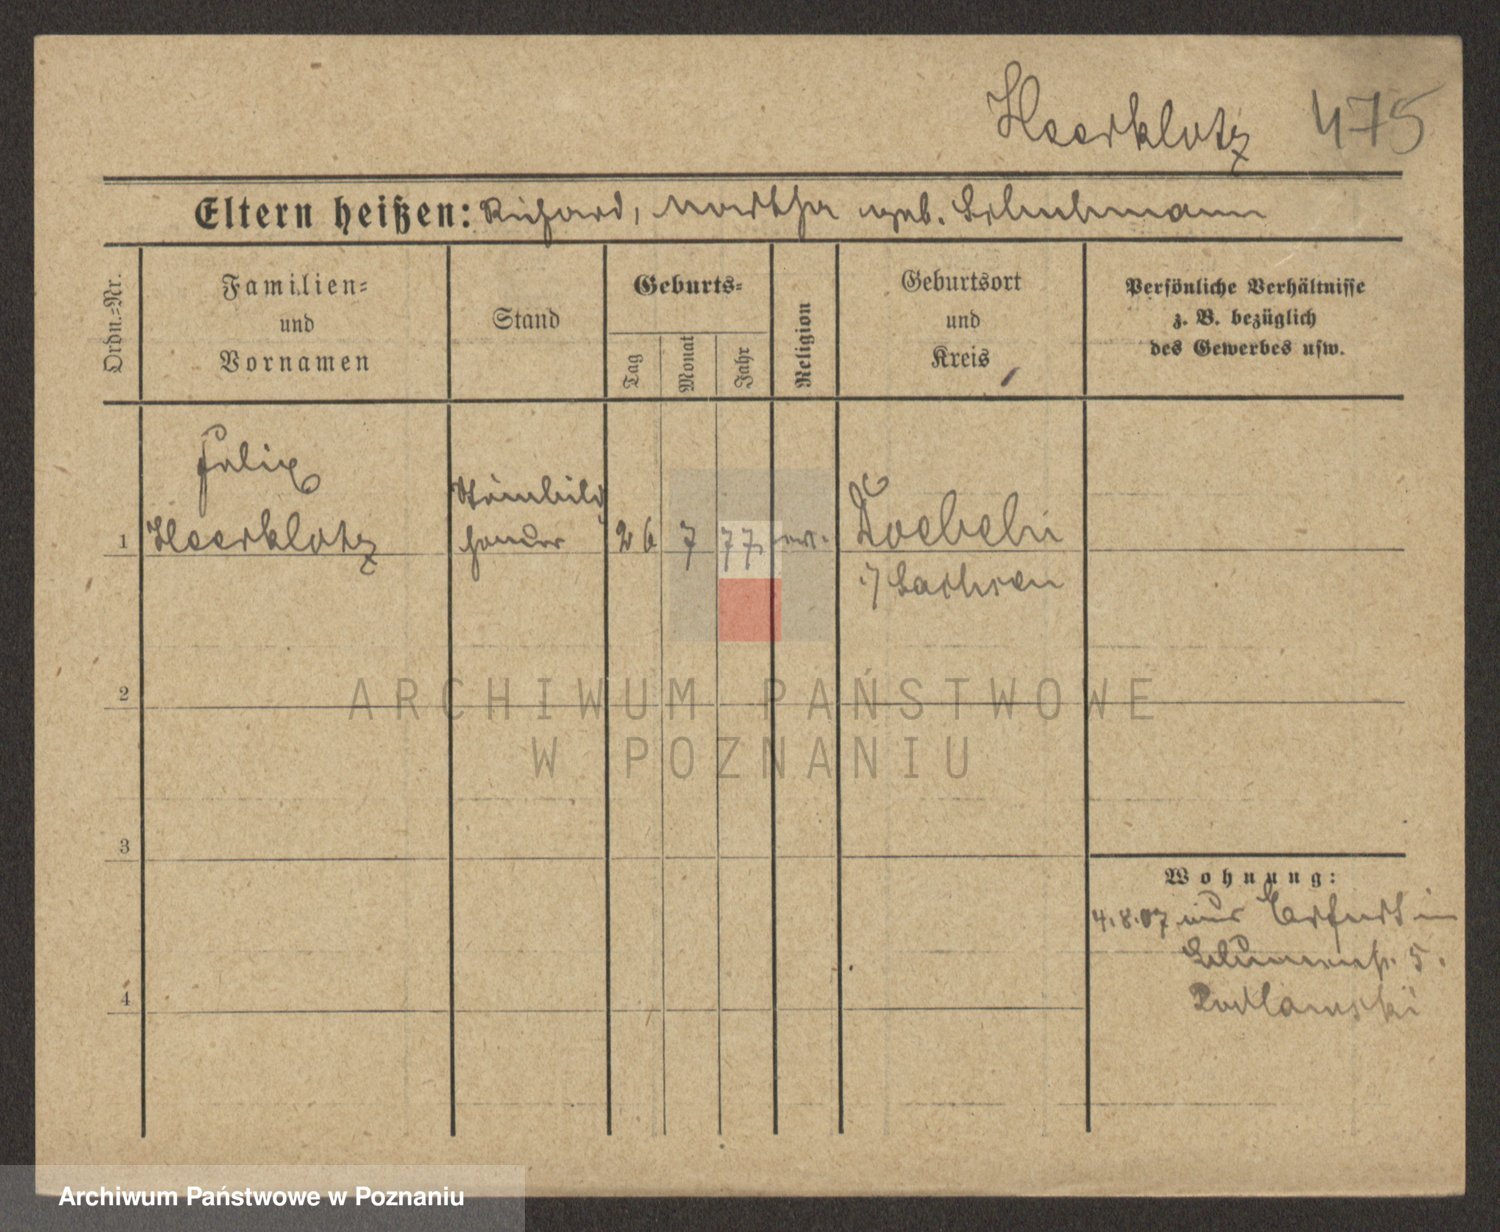 Heerklotz 475
Eltern heißen: Richard, Martha geb. Schuhmann
Ordn.=Nr.
Familien=
und
Vornamen
Stand
Geburts=
Tag
Monat
Jahr
Religion
Geburtsort
und
Kreis
Persönliche Verhältnisse
z. B. bezüglich
des Gewerbes usw.
Felix
1 Heerklotz
Steinbild
hauer
26 7 77
Doebeln
i/ Sachsen
2
3
4
ARCHIWUM PAŃSTWOWE
W POZNANIU
Wohnung:
4.8.07 aus Erfurt in
5.
Archiwum Państwowe w Poznaniu